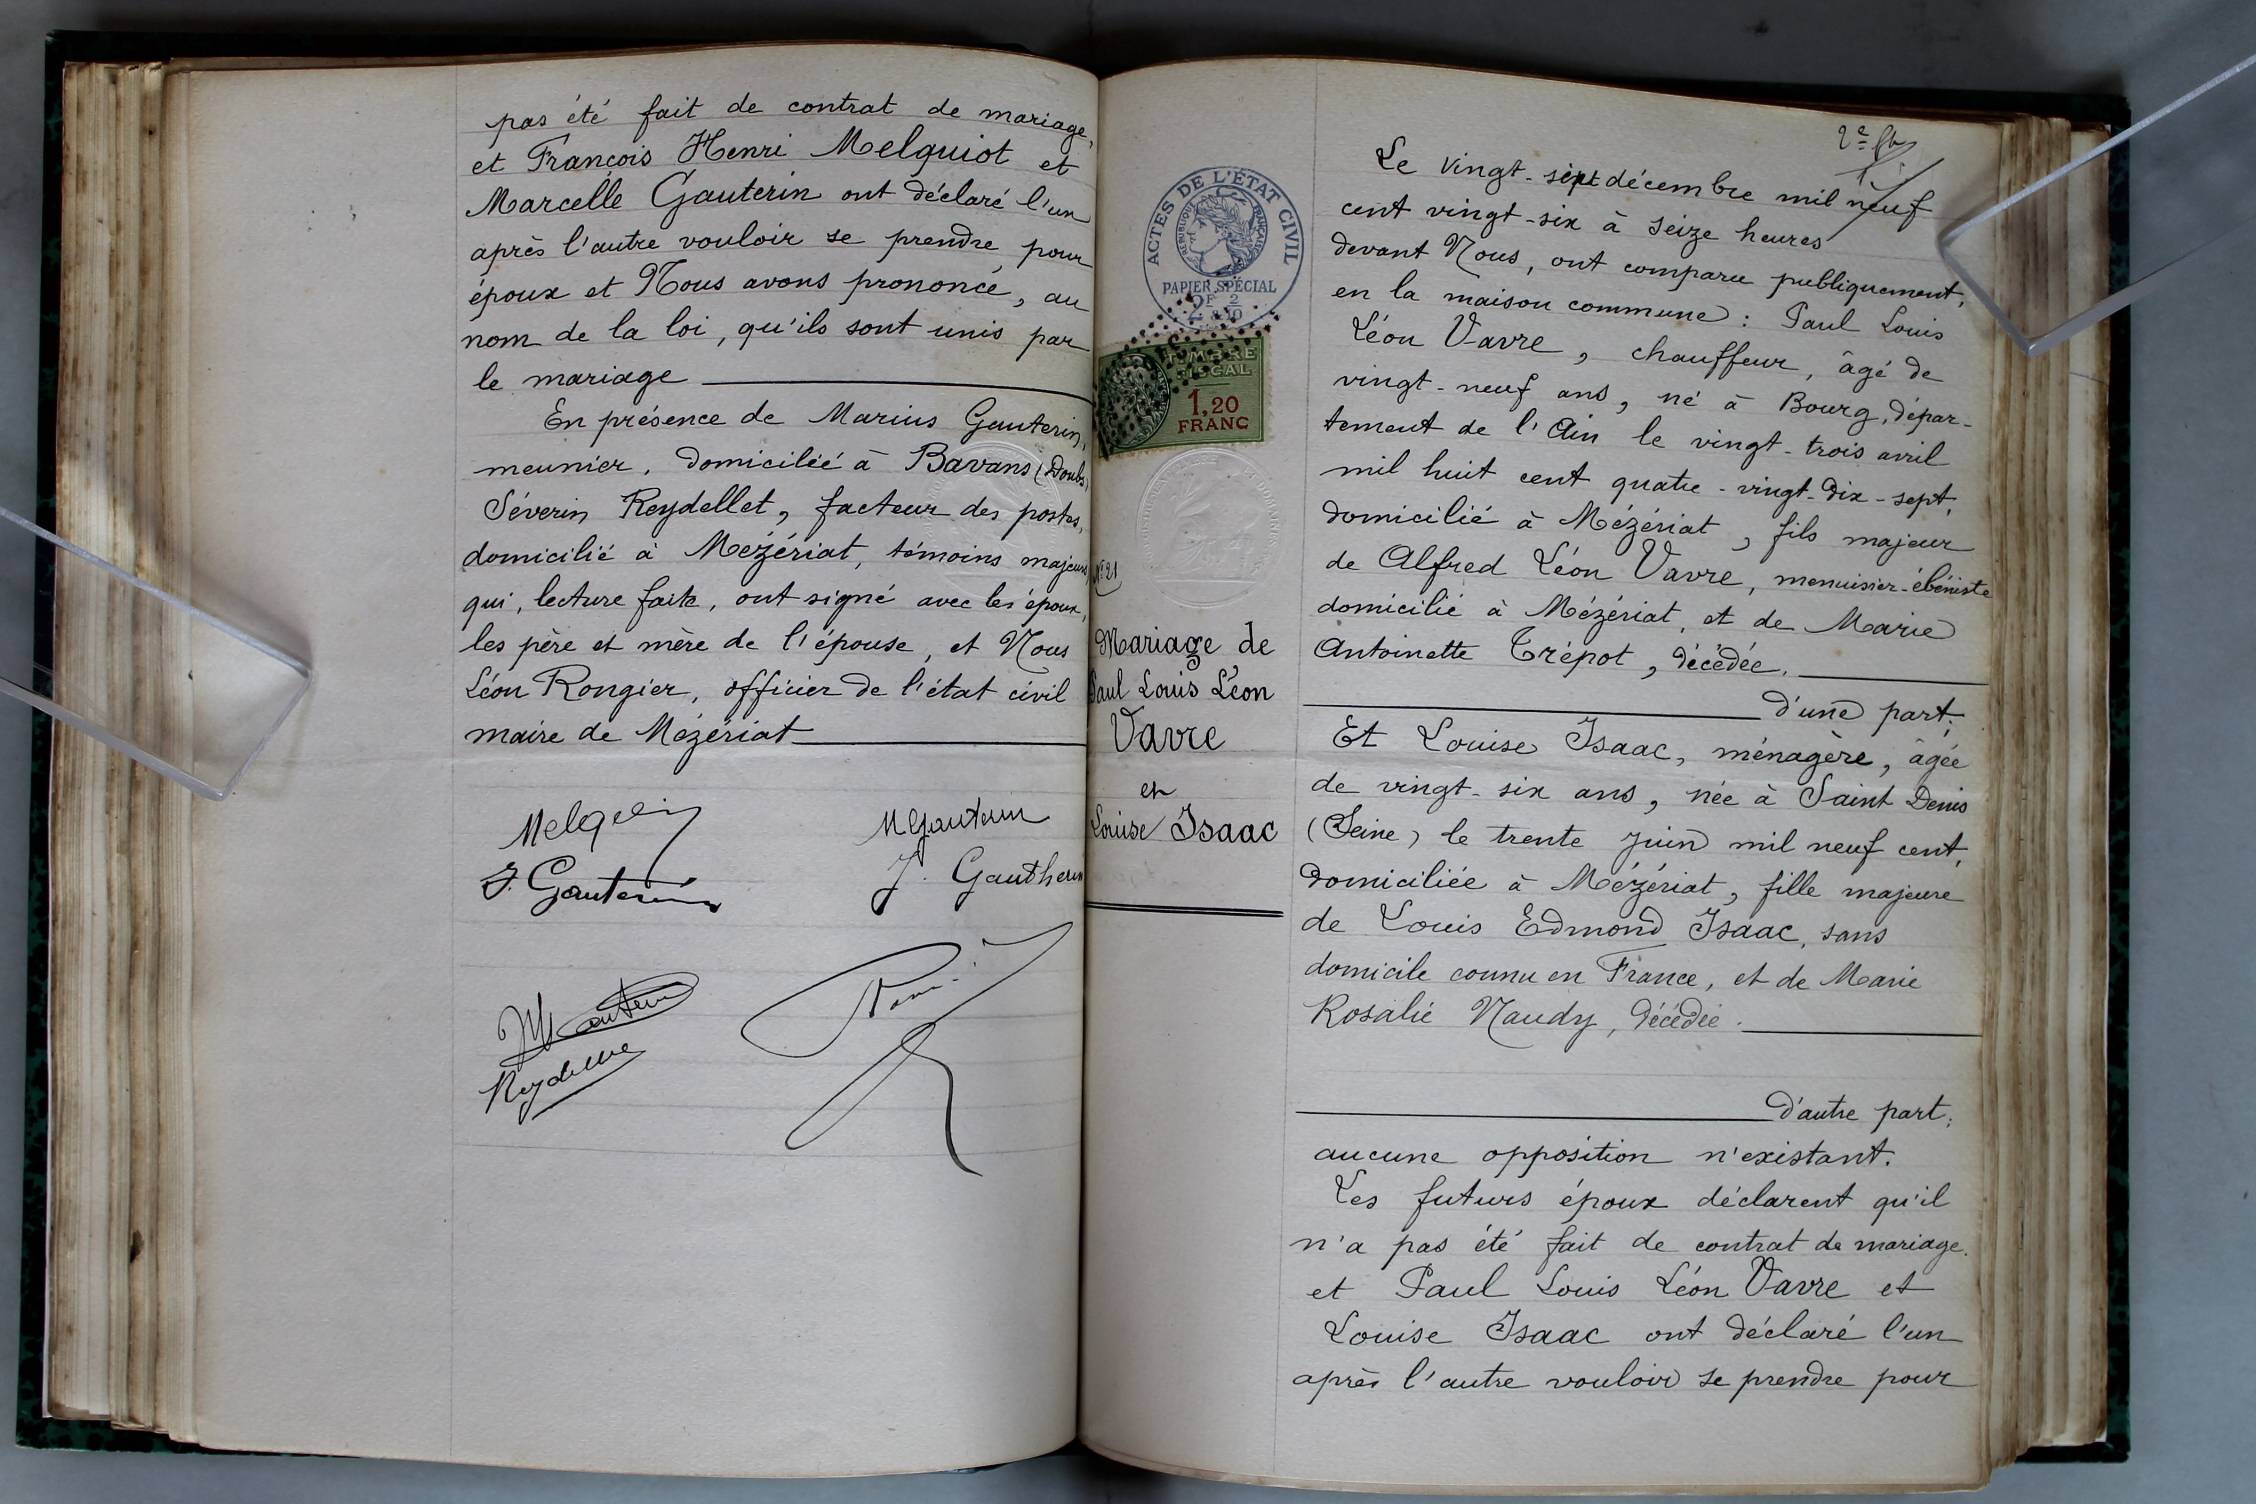 pas été fait de contrat de mariage,
et François Henri Melquiot et
Marcelle Gauterin ont déclaré l'un
après l'autre vouloir se prendre pour
époux et Nous avons prononcé, au
nom de la loi, qu'ils sont unis par
le mariage
En présence de Marius Gauterin,
meunier, domicilié à Bavans (Doubs)
Séverin Reydellet, facteur des postes,
domicilié à Mézériat, témoins majeurs
qui, lecture faite, ont signé avec les époux,
les père et mère de l'épouse, et Nous
Léon Rongier, officier de l'état civil
maire de Mézériat
M Gauterin
J. Gauterin
J. Gautherin
Reydellet
ACTES DE L'ÉTAT CIVIL
RÉPUBLIQUE FRANÇAISE
PAPIER SPÉCIAL
TIMBRE
FISCAL
1,20
FRANC
N° 21
Mariage de
Paul Louis Léon
Vavre
et
Louise Isaac
Le vingt-sept décembre mil neuf
cent vingt-six à seize heures
devant Nous, ont comparu publiquement,
en la maison commune : Paul Louis
Léon Vavre, chauffeur, âgé de
vingt-neuf ans, né à Bourg, dépar-
tement de l'Ain le vingt-trois avril
mil huit cent quatre-vingt-dix-sept,
domicilié à Mézériat, fils majeur
de Alfred Léon Vavre, menuisier-ébéniste
domicilié à Mézériat, et de Marie
Antoinette Trépot, décédée.
d'une part;
Et Louise Isaac, ménagère, âgée
de vingt-six ans, née à Saint Denis
(Seine) le trente juin mil neuf cent,
domiciliée à Mézériat, fille majeure
de Louis Edmond Isaac, sans
domicile connu en France, et de Marie
Rosalie Naudy, décédée.
d'autre part;
aucune opposition n'existant.
Les futurs époux déclarent qu'il
n'a pas été fait de contrat de mariage.
et Paul Louis Léon Vavre et
Louise Isaac ont déclaré l'un
après l'autre vouloir se prendre pour